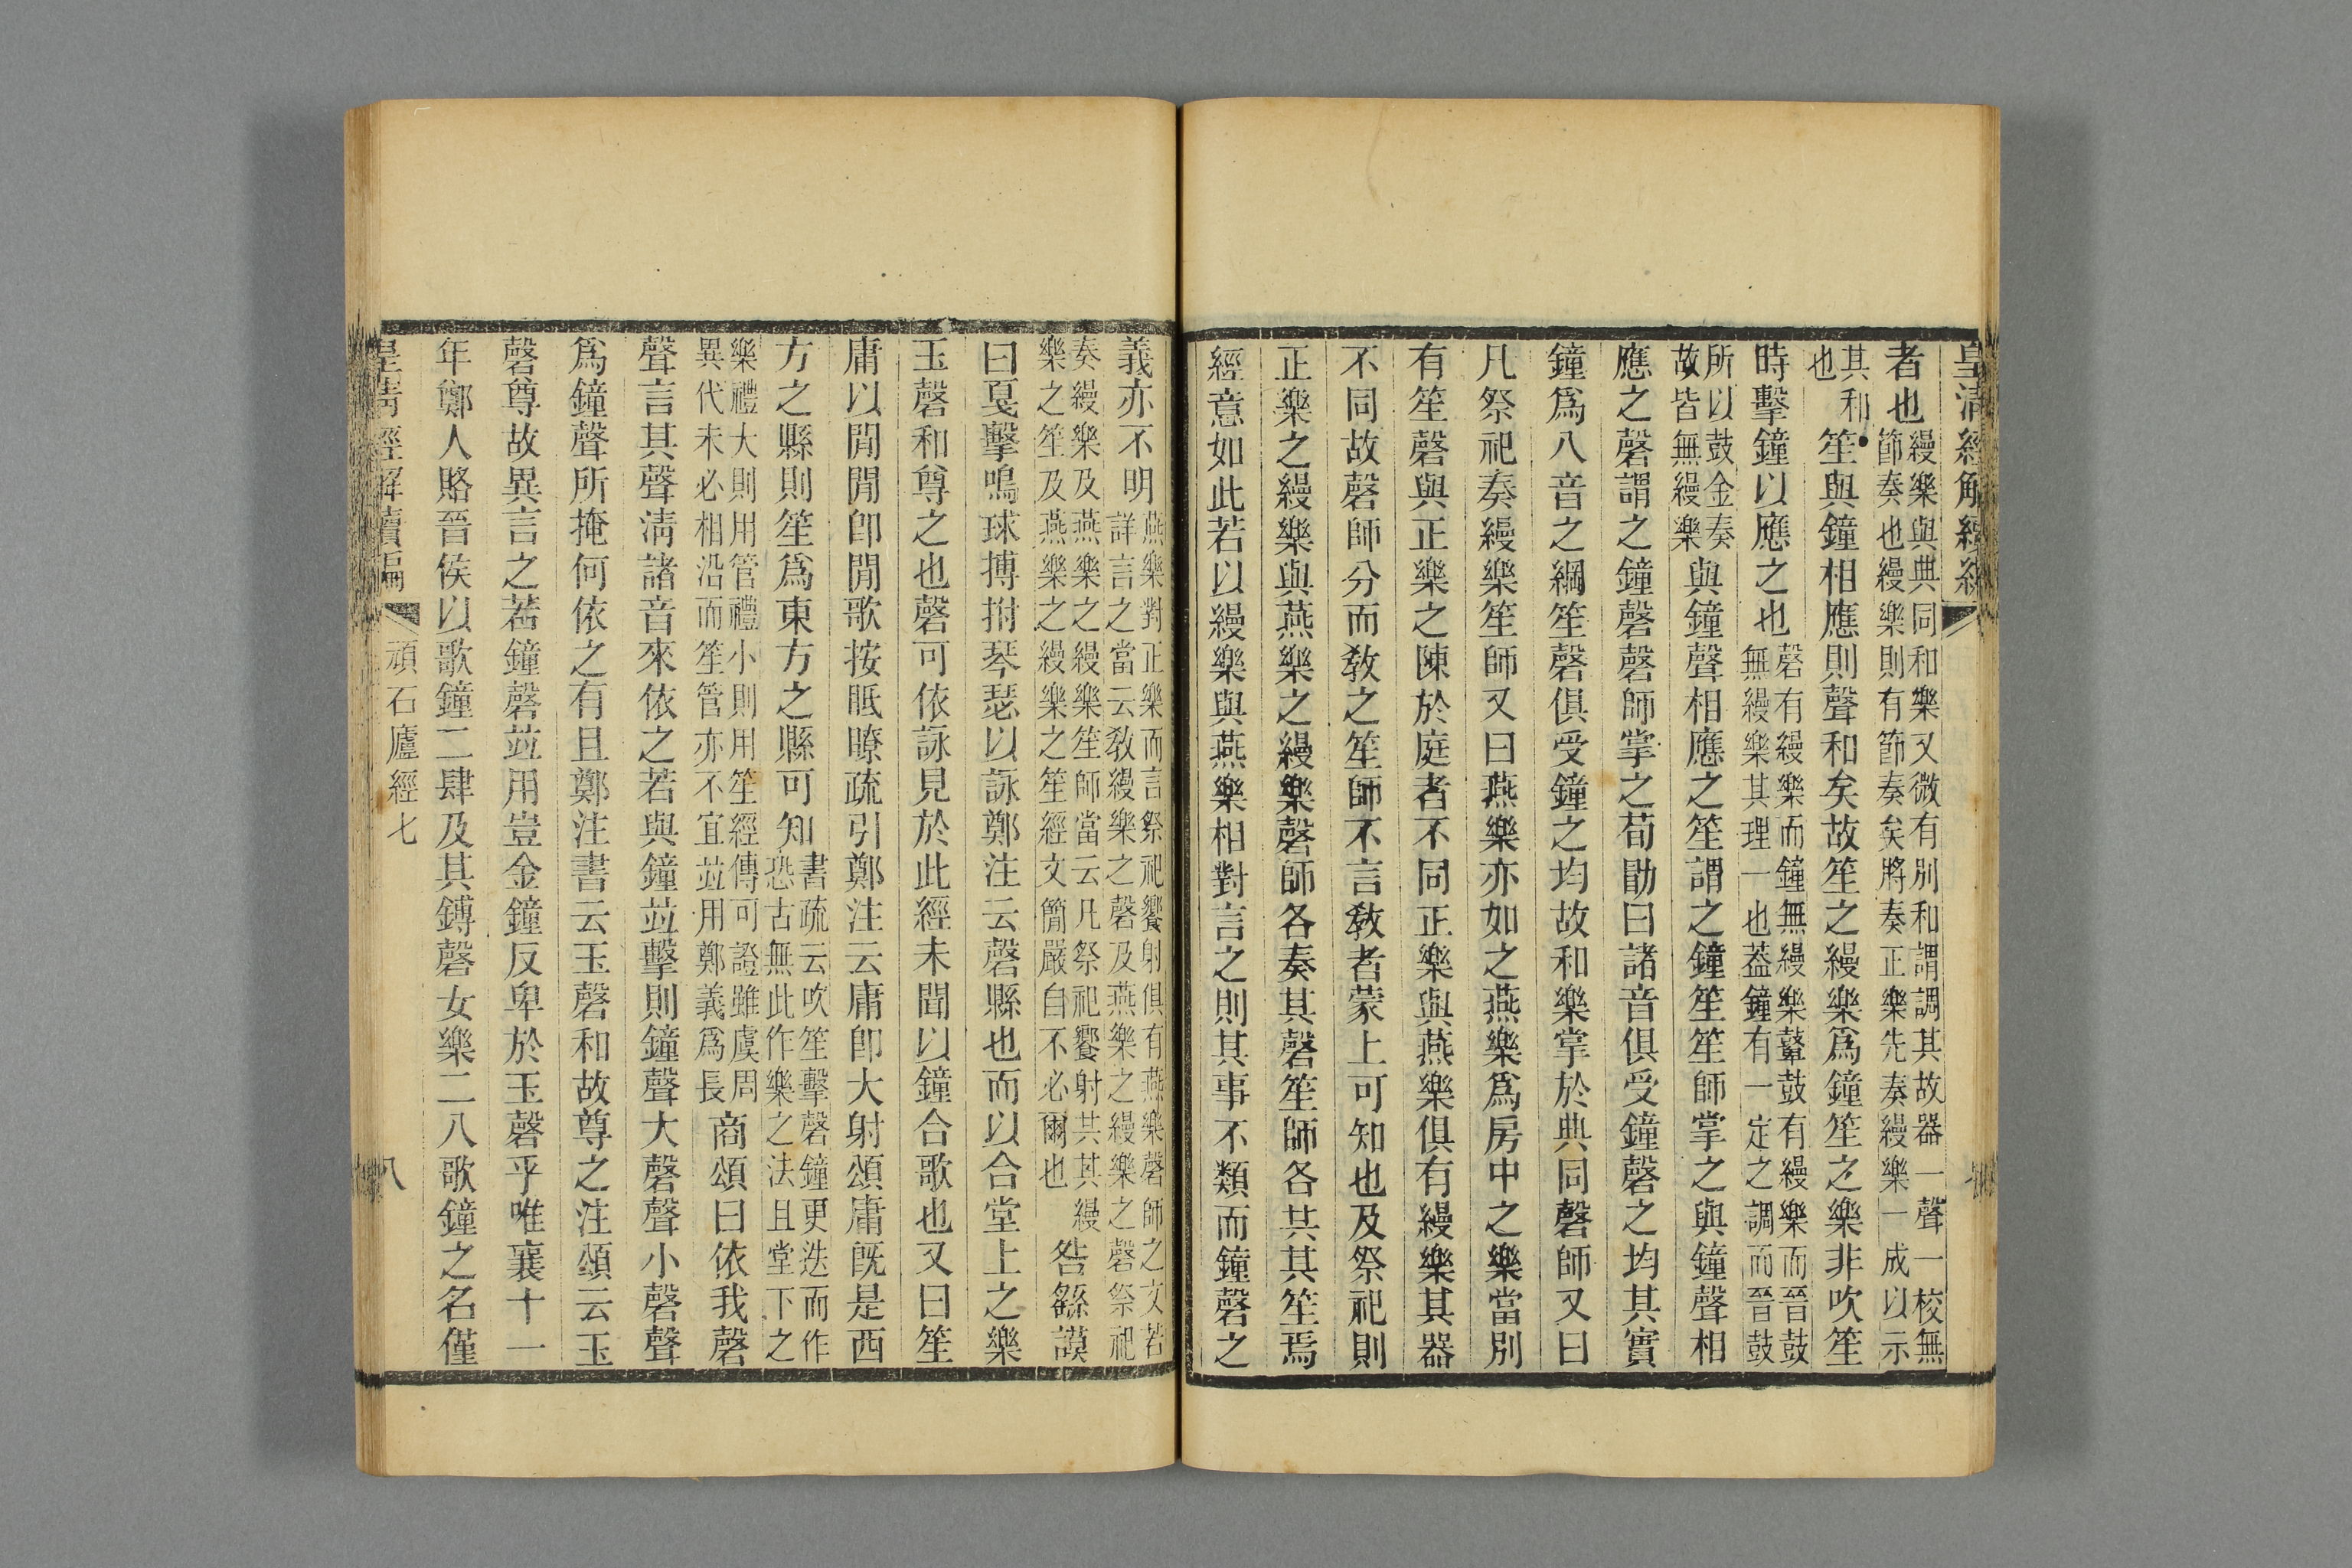 皇清經解續編
者也縵樂與典同和樂又微有別和謂調其故器一聲一校無節奏也縵樂則有節奏矣將奏正樂先奏縵樂一成以示
其和也笙與鐘相應則聲和矣故笙之縵樂爲鐘笙之樂非吹笙
時擊鐘以應之也磬有縵樂而鐘無縵樂鼛鼓有縵樂而晉鼓無縵樂其理一也葢鐘有一定之調而晉鼓
所以鼓金奏故皆無縵樂與鐘聲相應之笙謂之鐘笙笙師掌之與鐘聲相
應之磬謂之鐘磬磬師掌之荀勖曰諸音俱受鐘磬之均其實
鐘爲八音之綱笙磬俱受鐘之均故和樂掌於典同磬師又曰
凡祭祀奏縵樂笙師又曰燕樂亦如之燕樂爲房中之樂當別
有笙磬與正樂之陳於庭者不同正樂與燕樂俱有縵樂其器
不同故磬師分而敎之笙師不言敎者蒙上可知也及祭祀則
正樂之縵樂與燕樂之縵樂磬師各奏其磬笙師各共其笙焉
經意如此若以縵樂與燕樂相對言之則其事不類而鐘磬之
義亦不明燕樂對正樂而言祭祀饗射俱有燕樂磬師之文若詳言之當云敎縵樂之磬及燕樂之縵樂之磬祭祀
奏縵樂及燕樂之縵樂笙師當云凡祭祀饗射其其縵樂之笙及燕樂之縵樂之笙經文簡嚴自不必爾也咎繇謨
曰戞擊鳴球搏拊琴瑟以詠鄭注云磬縣也而以合堂上之樂
玉磬和尊之也磬可依詠見於此經未聞以鐘合歌也又曰笙
庸以閒閒卽閒歌按眡瞭疏引鄭注云庸卽大射頌庸旣是西
方之縣則笙爲東方之縣可知書疏云吹笙擊磬鐘更迭而作恐古無此作樂之法且堂下之
樂禮大則用管禮小則用笙經傳可證雖虞周異代未必相沿而笙管亦不宜竝用鄭義爲長商頌曰依我磬
聲言其聲淸諸音來依之若與鐘竝擊則鐘聲大磬聲小磬聲
爲鐘聲所掩何依之有且鄭注書云玉磬和故尊之注頌云玉
磬尊故異言之若鐘磬竝用豈金鐘反卑於玉磬乎唯襄十一
年鄭人賂晉侯以歌鐘二肆及其鎛磬女樂二八歌鐘之名僅
皇清經解續編 頑石廬經七 八